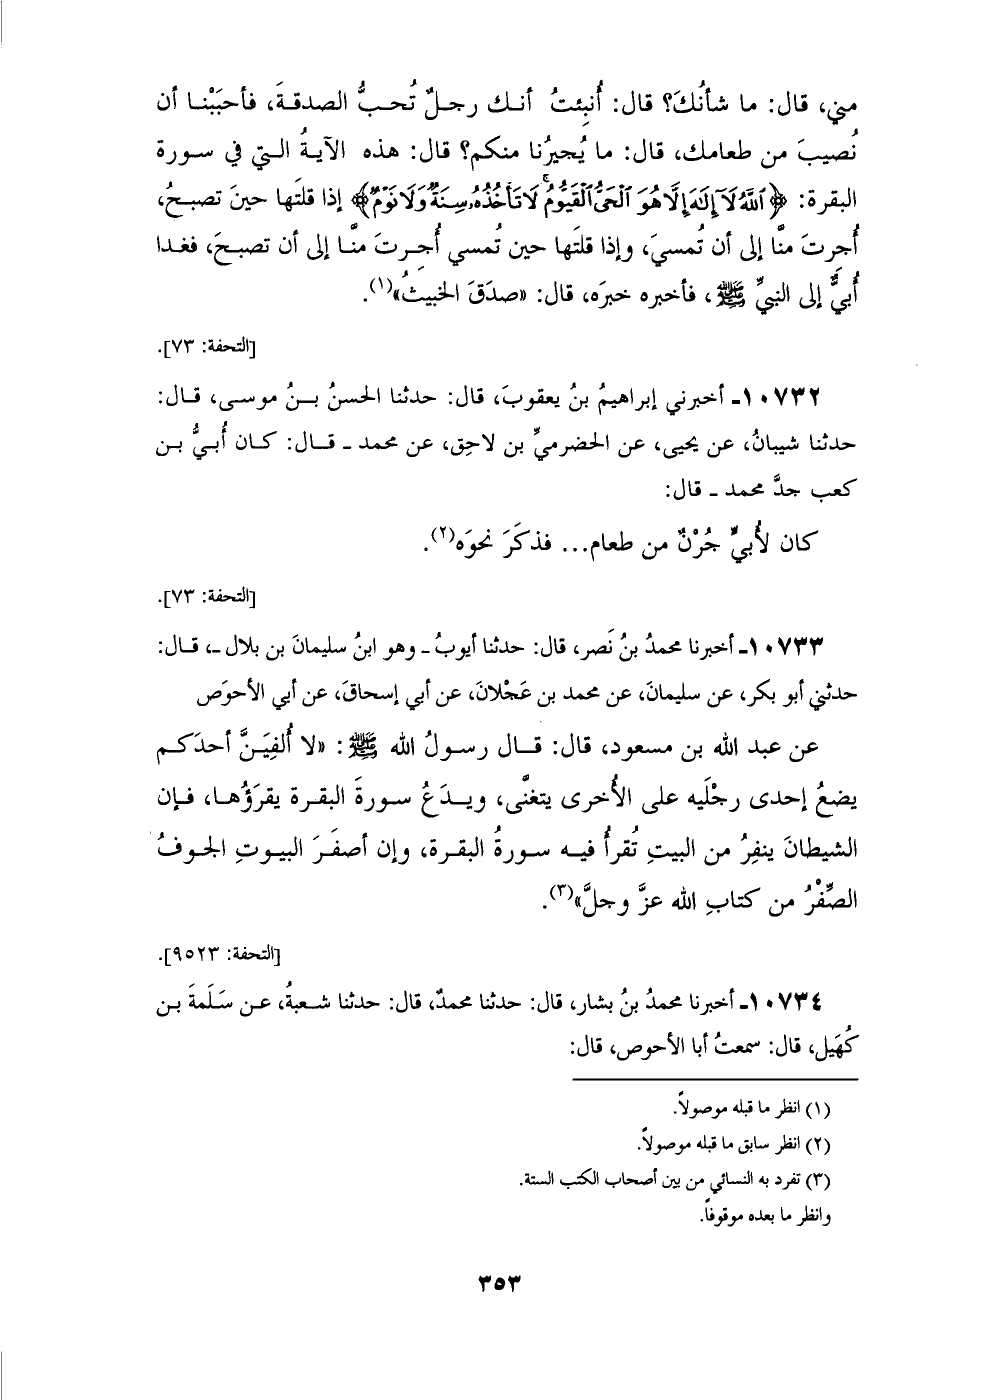 مني، قال: ما شأنُكَ؟ قال: أُنبِئتُ أنك رجلٌ تُحبُّ الصدقةَ، فأحبَبْنا أن
نُصيبَ من طعامك، قال: ما يُجيرُنا منكم؟ قال: هذه الآيةُ التي في سورة
البقرة: ﴿ٱللَّهُ لَآ إِلَٰهَ إِلَّا هُوَ ٱلْحَىُّ ٱلْقَيُّومُ ۚ لَا تَأْخُذُهُۥ سِنَةٌ وَلَا نَوْمٌ﴾ إذا قلتَها حينَ تصبحُ،
أُجرتَ منَّا إلى أن تُمسيَ، وإذا قلتَها حين تُمسي أُجِرتَ منَّا إلى أن تصبحَ، فغدا
أُبيٌّ إلى النبيِّ ﷺ، فأخبره خبرَه، قال: «صدَقَ الخبيثُ»(١).
[التحفة: ٧٣].
١٠٧٣٢- أخبرني إبراهيمُ بنُ يعقوبَ، قال: حدثنا الحسنُ بنُ موسى، قال:
حدثنا شيبانُ، عن يحيى، عن الحضرميِّ بن لاحِق، عن محمد - قال: كان أُبيُّ بن
كعب جدَّ محمد - قال:
كان لأُبيٍّ جُرْنٌ من طعام... فذكَرَ نحوَه(٢).
[التحفة: ٧٣].
١٠٧٣٣- أخبرنا محمدُ بنُ نَصر، قال: حدثنا أيوبُ - وهو ابنُ سليمانَ بن بلال -، قال:
حدثني أبو بكر، عن سليمانَ، عن محمد بن عَجْلانَ، عن أبي إسحاقَ، عن أبي الأحوَص
عن عبد الله بن مسعود، قال: قال رسولُ الله ﷺ: «لا أُلفِيَنَّ أحدَكم
يضعُ إحدى رجْلَيه على الأُخرى يتغنَّى، ويدَعُ سورةَ البقرة يقرَؤُها، فإن
الشيطانَ ينفِرُ من البيتِ تُقرأُ فيه سورةُ البقرة، وإن أصفَرَ البيوتِ الجوفُ
الصِّفْرُ من كتابِ الله عزَّ وجلَّ»(٣).
[التحفة: ٩٥٢٣].
١٠٧٣٤- أخبرنا محمدُ بنُ بشار، قال: حدثنا محمدٌ، قال: حدثنا شعبةُ، عن سَلَمةَ بن
كُهَيل، قال: سمعتُ أبا الأحوص، قال:
(١) انظر ما قبله موصولاً.
(٢) انظر سابق ما قبله موصولاً.
(٣) تفرد به النسائي من بين أصحاب الكتب الستة.
وانظر ما بعده موقوفاً.
٣٥٣